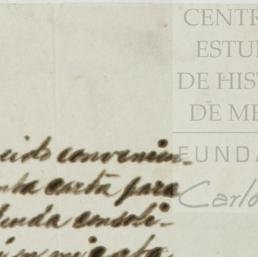 CENTR
ESTU
DE HIS
DE ME
FUNDA
Carlo
cido convenien-
nta carta para
deuda consoli-